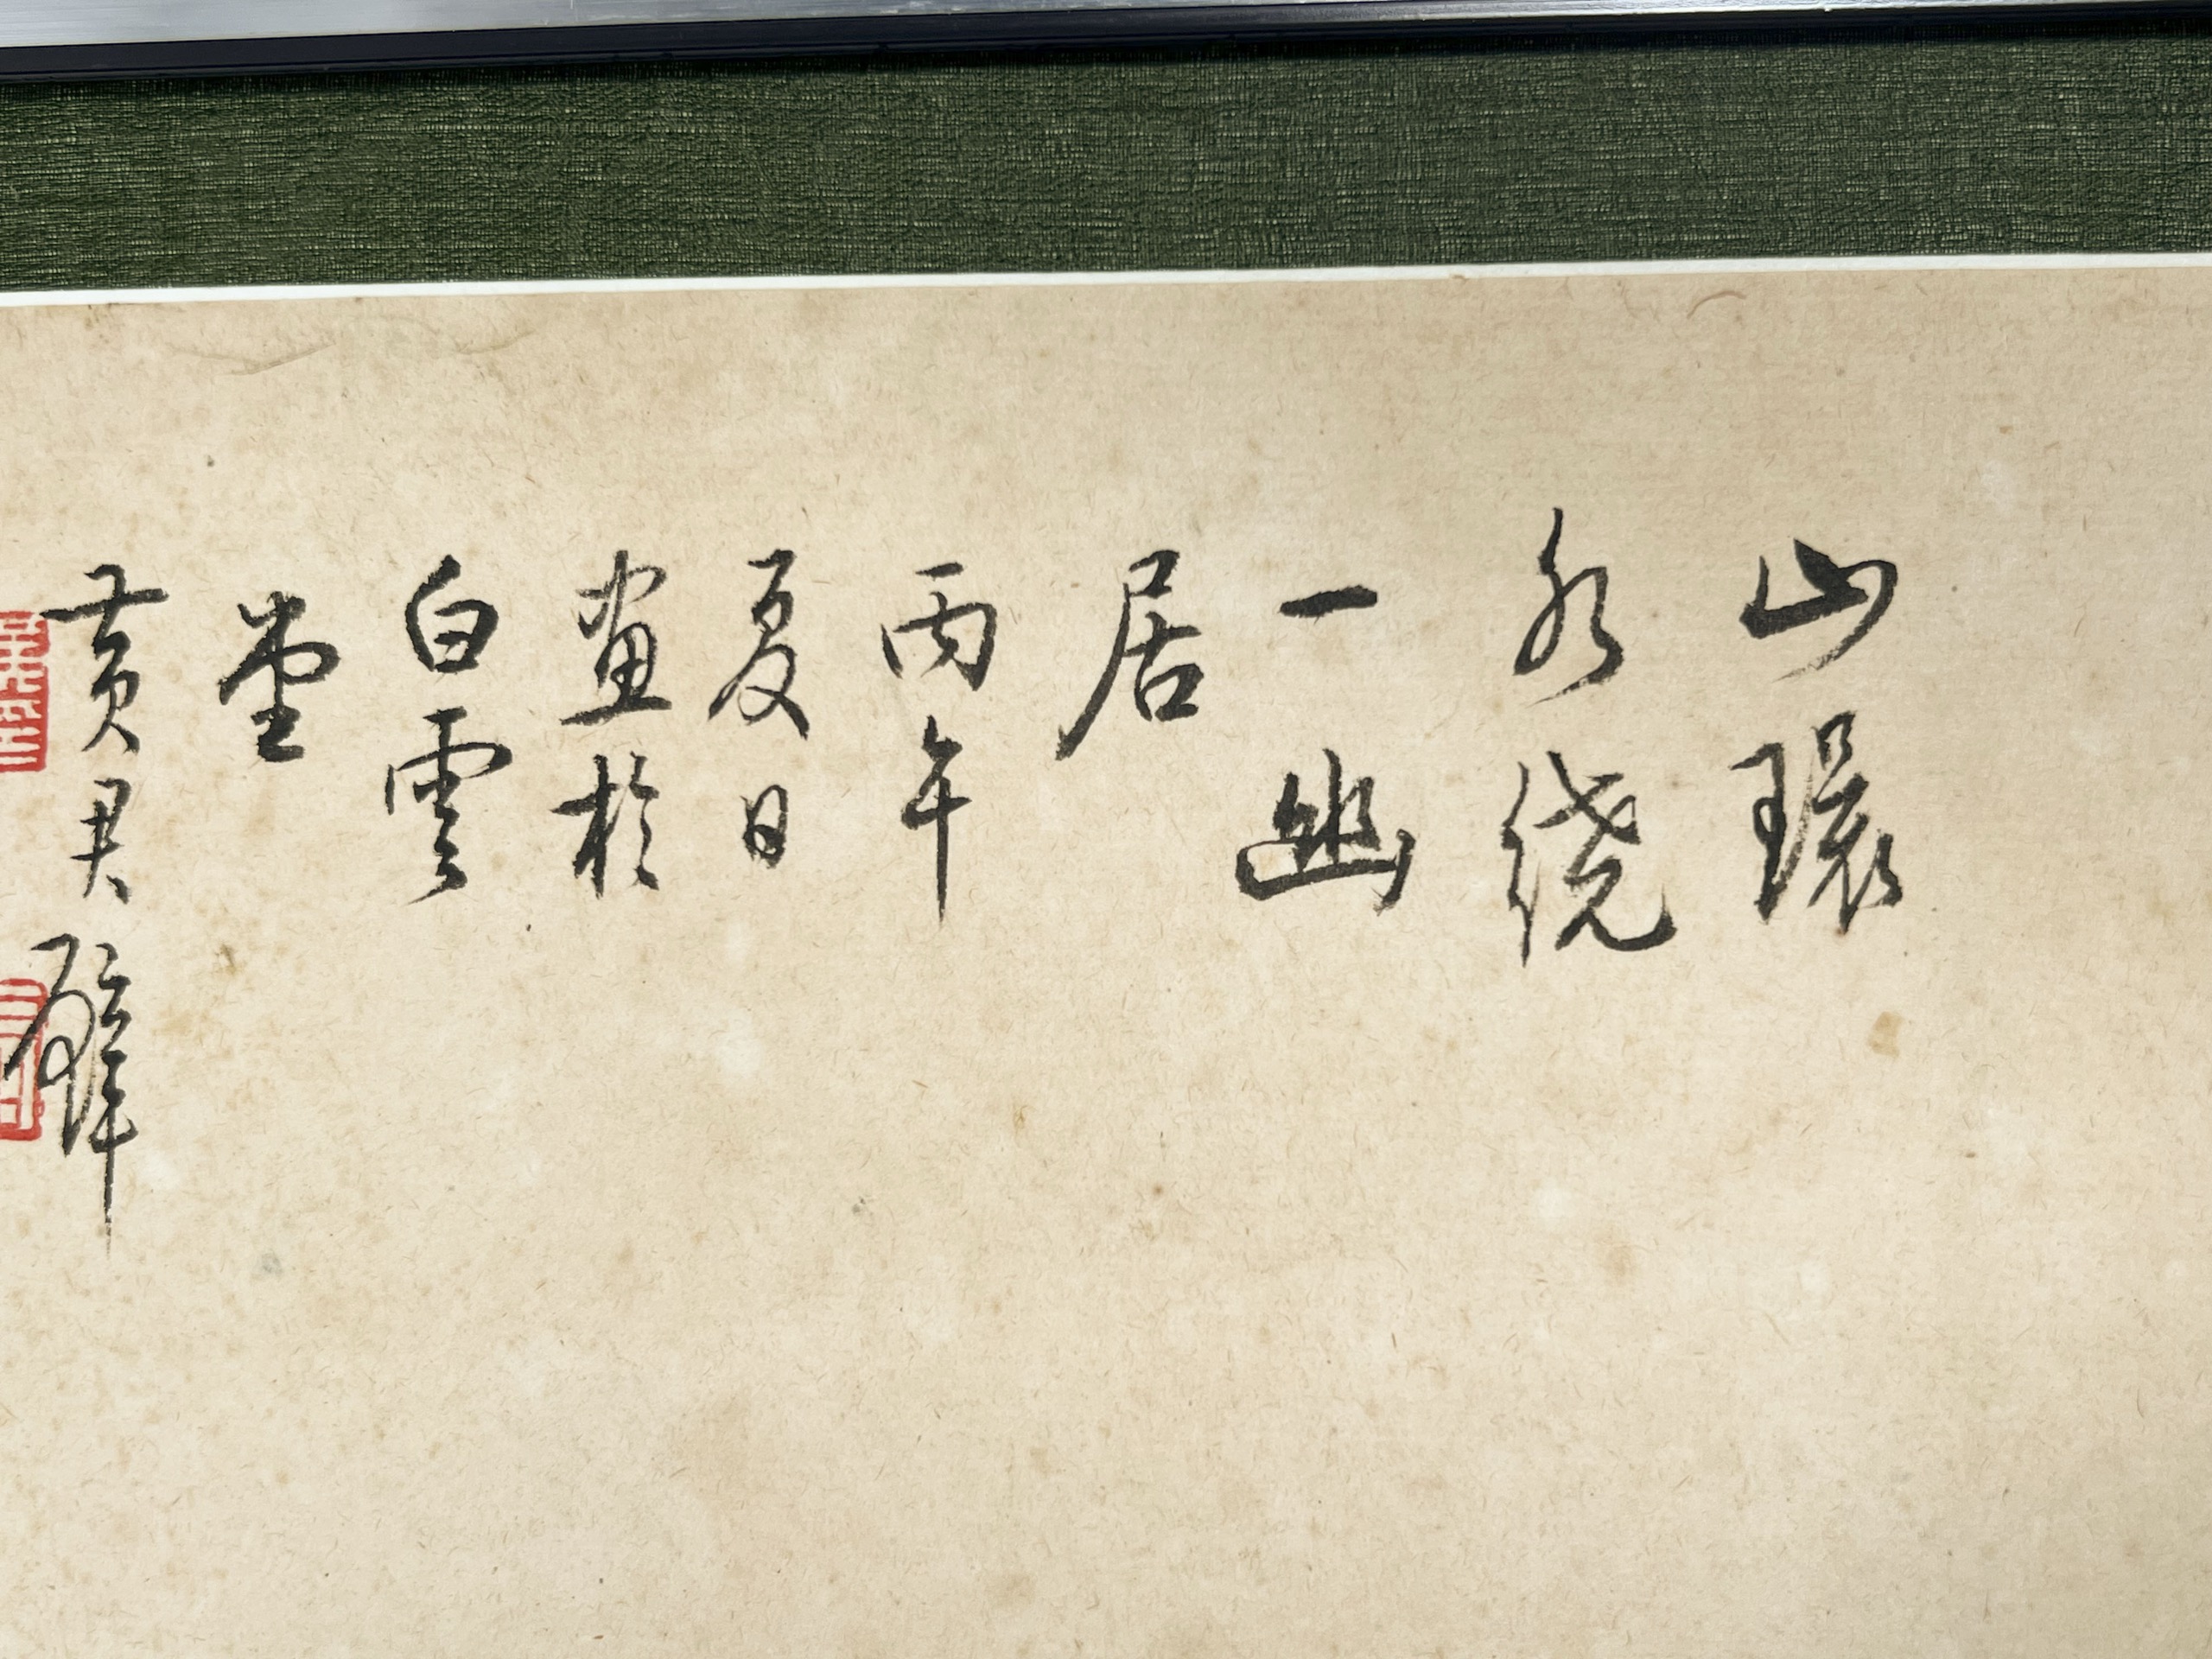 山環
水繞
一幽
居
丙午
夏日
畫於
白雲
堂
黃君璧